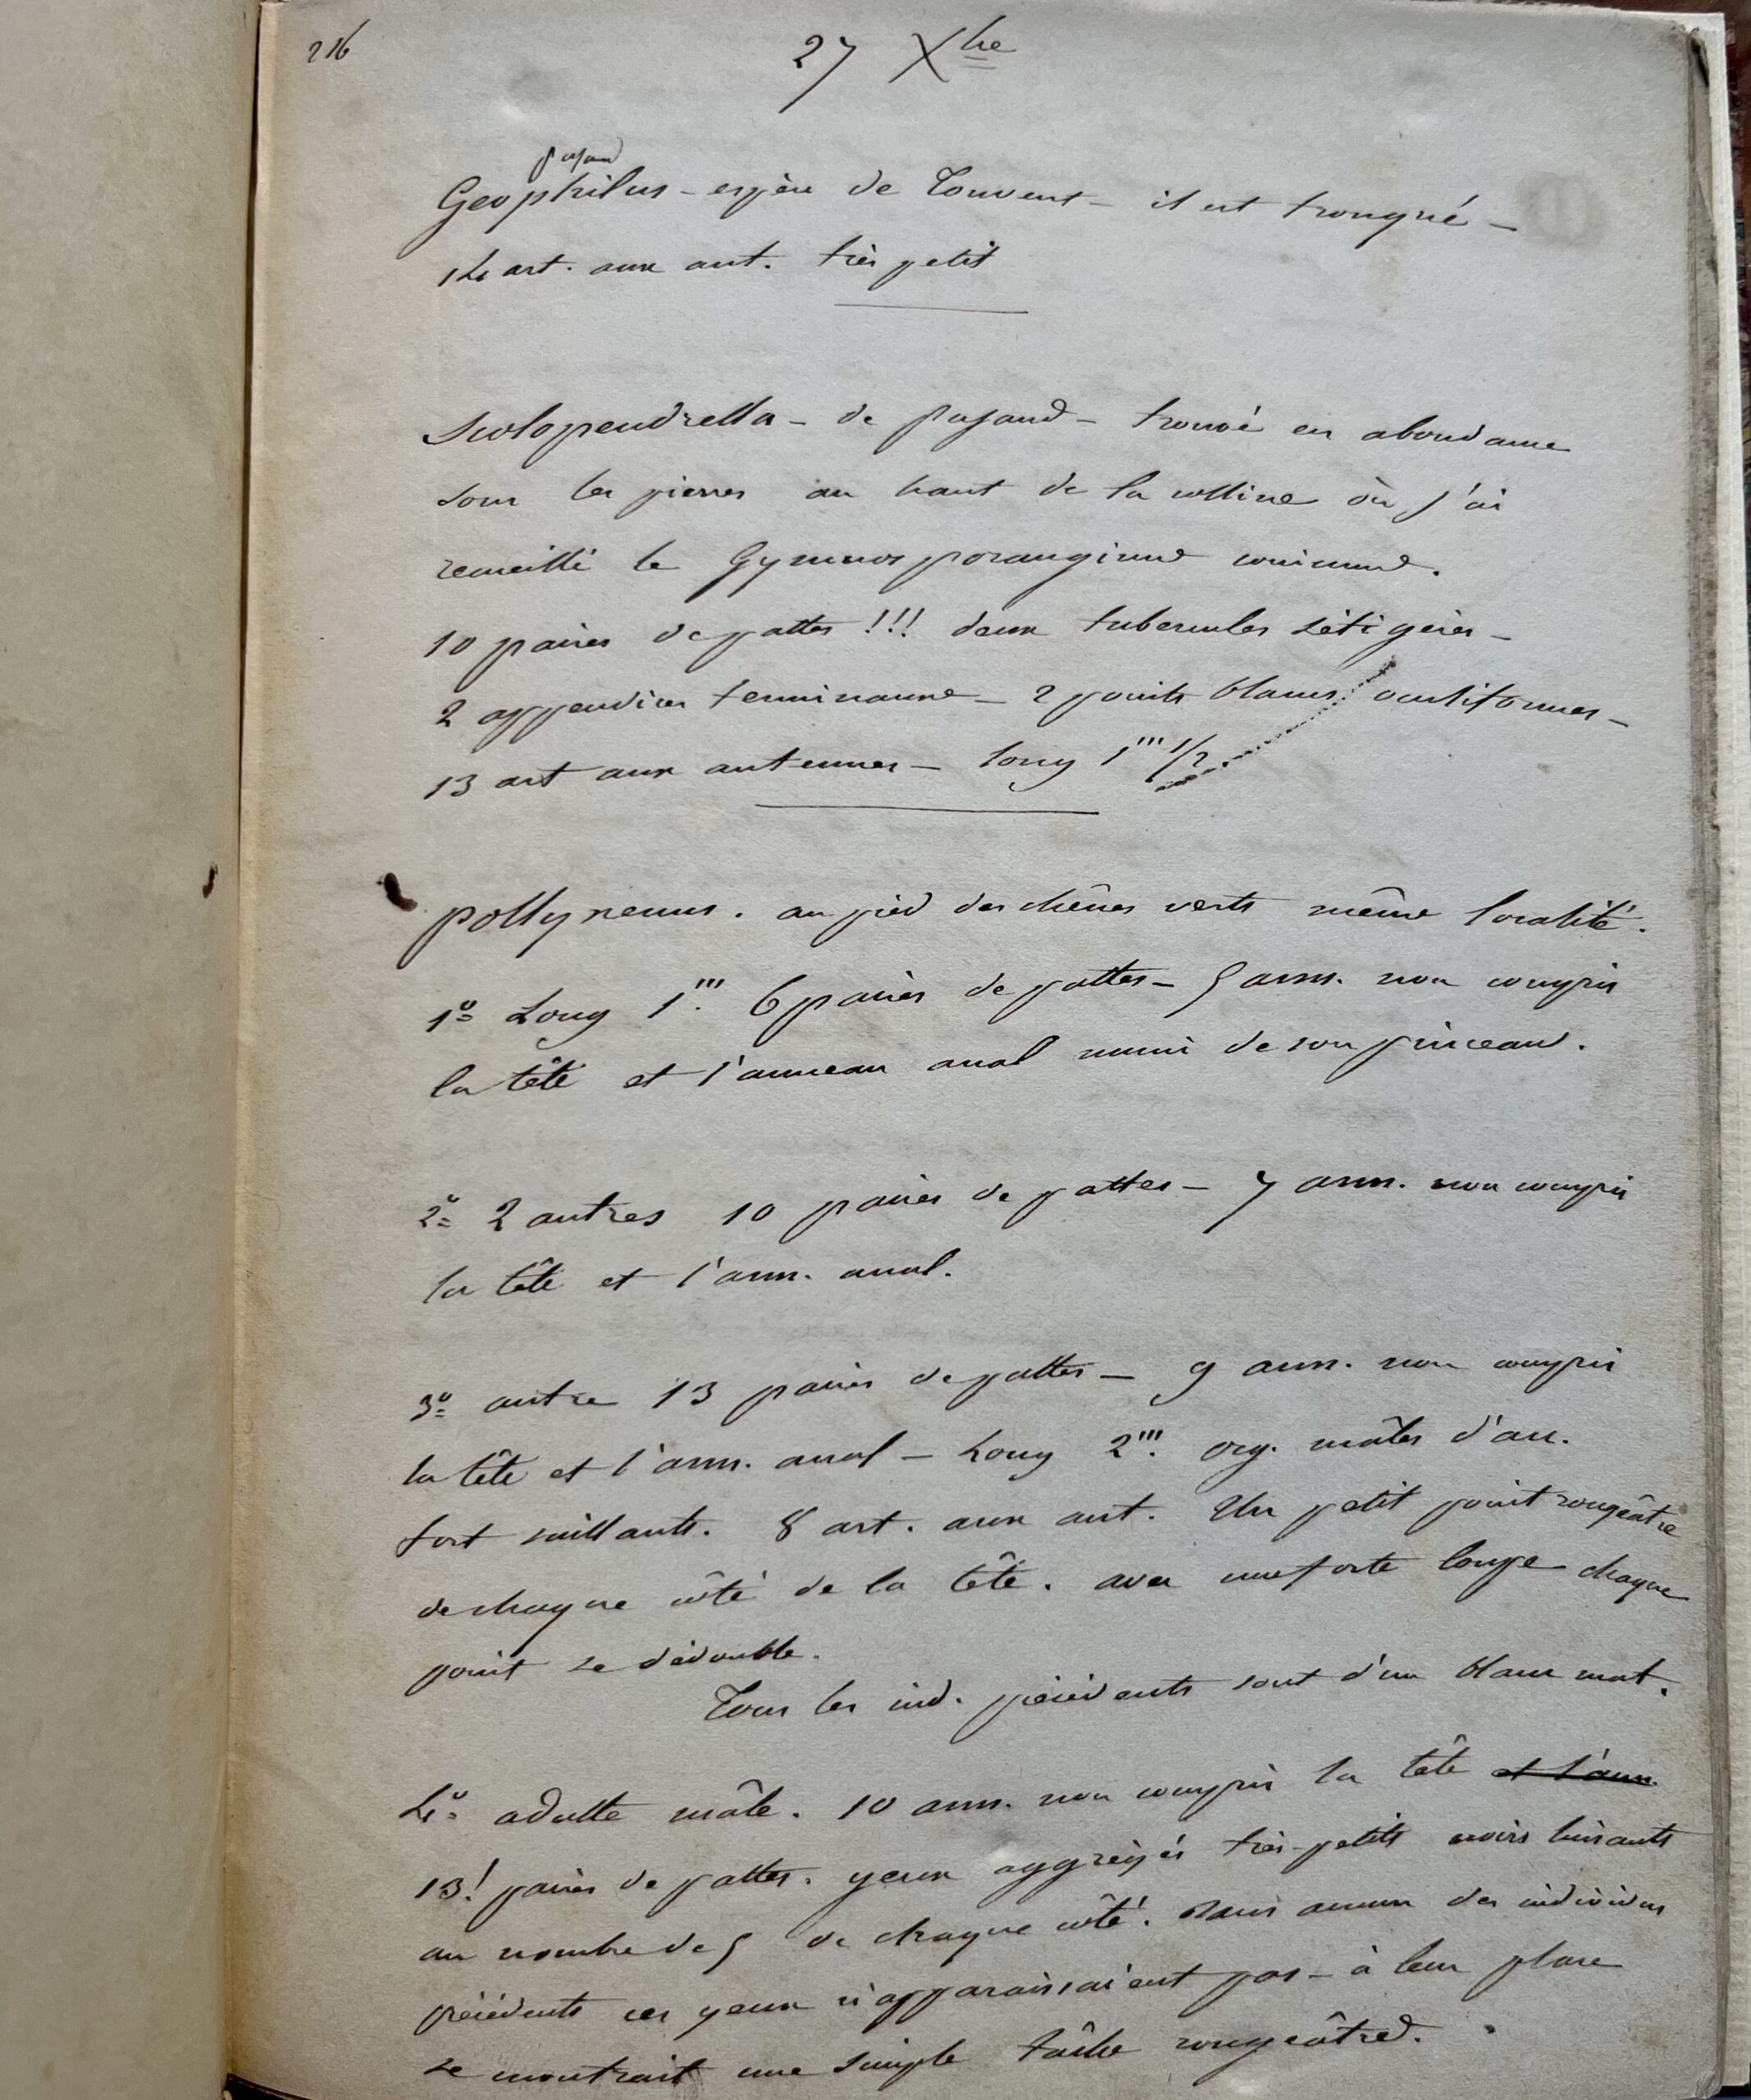 216
27 Xbre
pujaud
Geophilus - espèce de Touvent - il est tronqué -
14 art. aux ant. très petit
Scolopendrella - de pujaud - trouvé en abondance
sous les pierres au haut de la colline où j'ai
recueilli le Gymnosporangium commun.
10 paires de pattes !!! deux tubercules sétigères -
2 appendices terminaux - 2 points blancs oculiformes -
13 art aux antennes - long 1''' 1/2.
pollyxenus. au pied des chênes verts même localité.
1º Long 1'''. 6 paires de pattes - 5 ann. non compris
la tête et l'anneau anal muni de son pinceau.
2º 2 autres 10 paires de pattes - 7 ann. non compris
la tête et l'ann. anal.
3º autre 13 paires de pattes - 9 ann. non compris
la tête et l'ann. anal - Long 2'''. org. mâles d'acc.
fort saillants. 8 art. aux ant. Un petit point rougeâtre
de chaque côté de la tête. avec une forte loupe chaque
point se dédouble.
Tous les ind. précédents sont d'un blanc mat.
4º adulte mâle. 10 ann. non compris la tête et l'ann.
13! paires de pattes. yeux aggrégés très-petits noirs luisants
au nombre de 5 de chaque côté. Dans aucun des individus
précédents ces yeux n'apparaissaient pas - à leur place
se montrait une simple tâche rougeâtre.